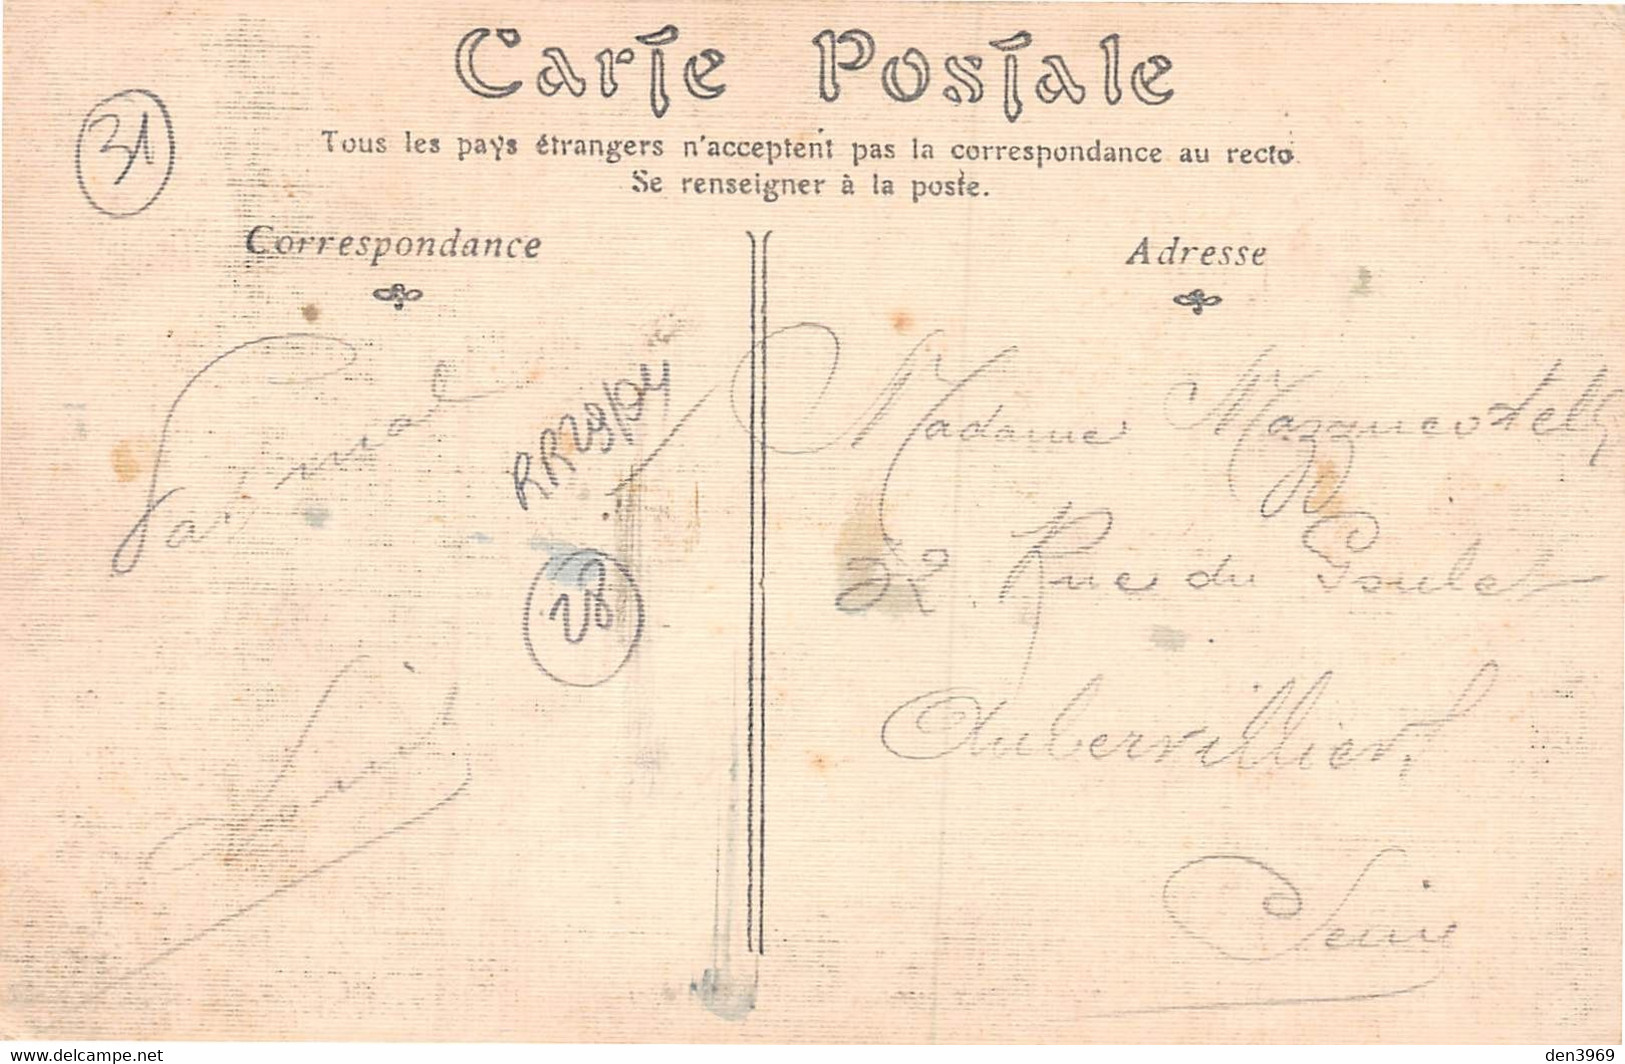 Carte Postale
31
Tous les pays étrangers n'acceptent pas la correspondance au recto.
Se renseigner à la poste.
Correspondance
Adresse
Pas mal
RR29/04
28
Madame
52 Rue du Goulet
Aubervilliers
Seine
www.delcampe.net
den3969